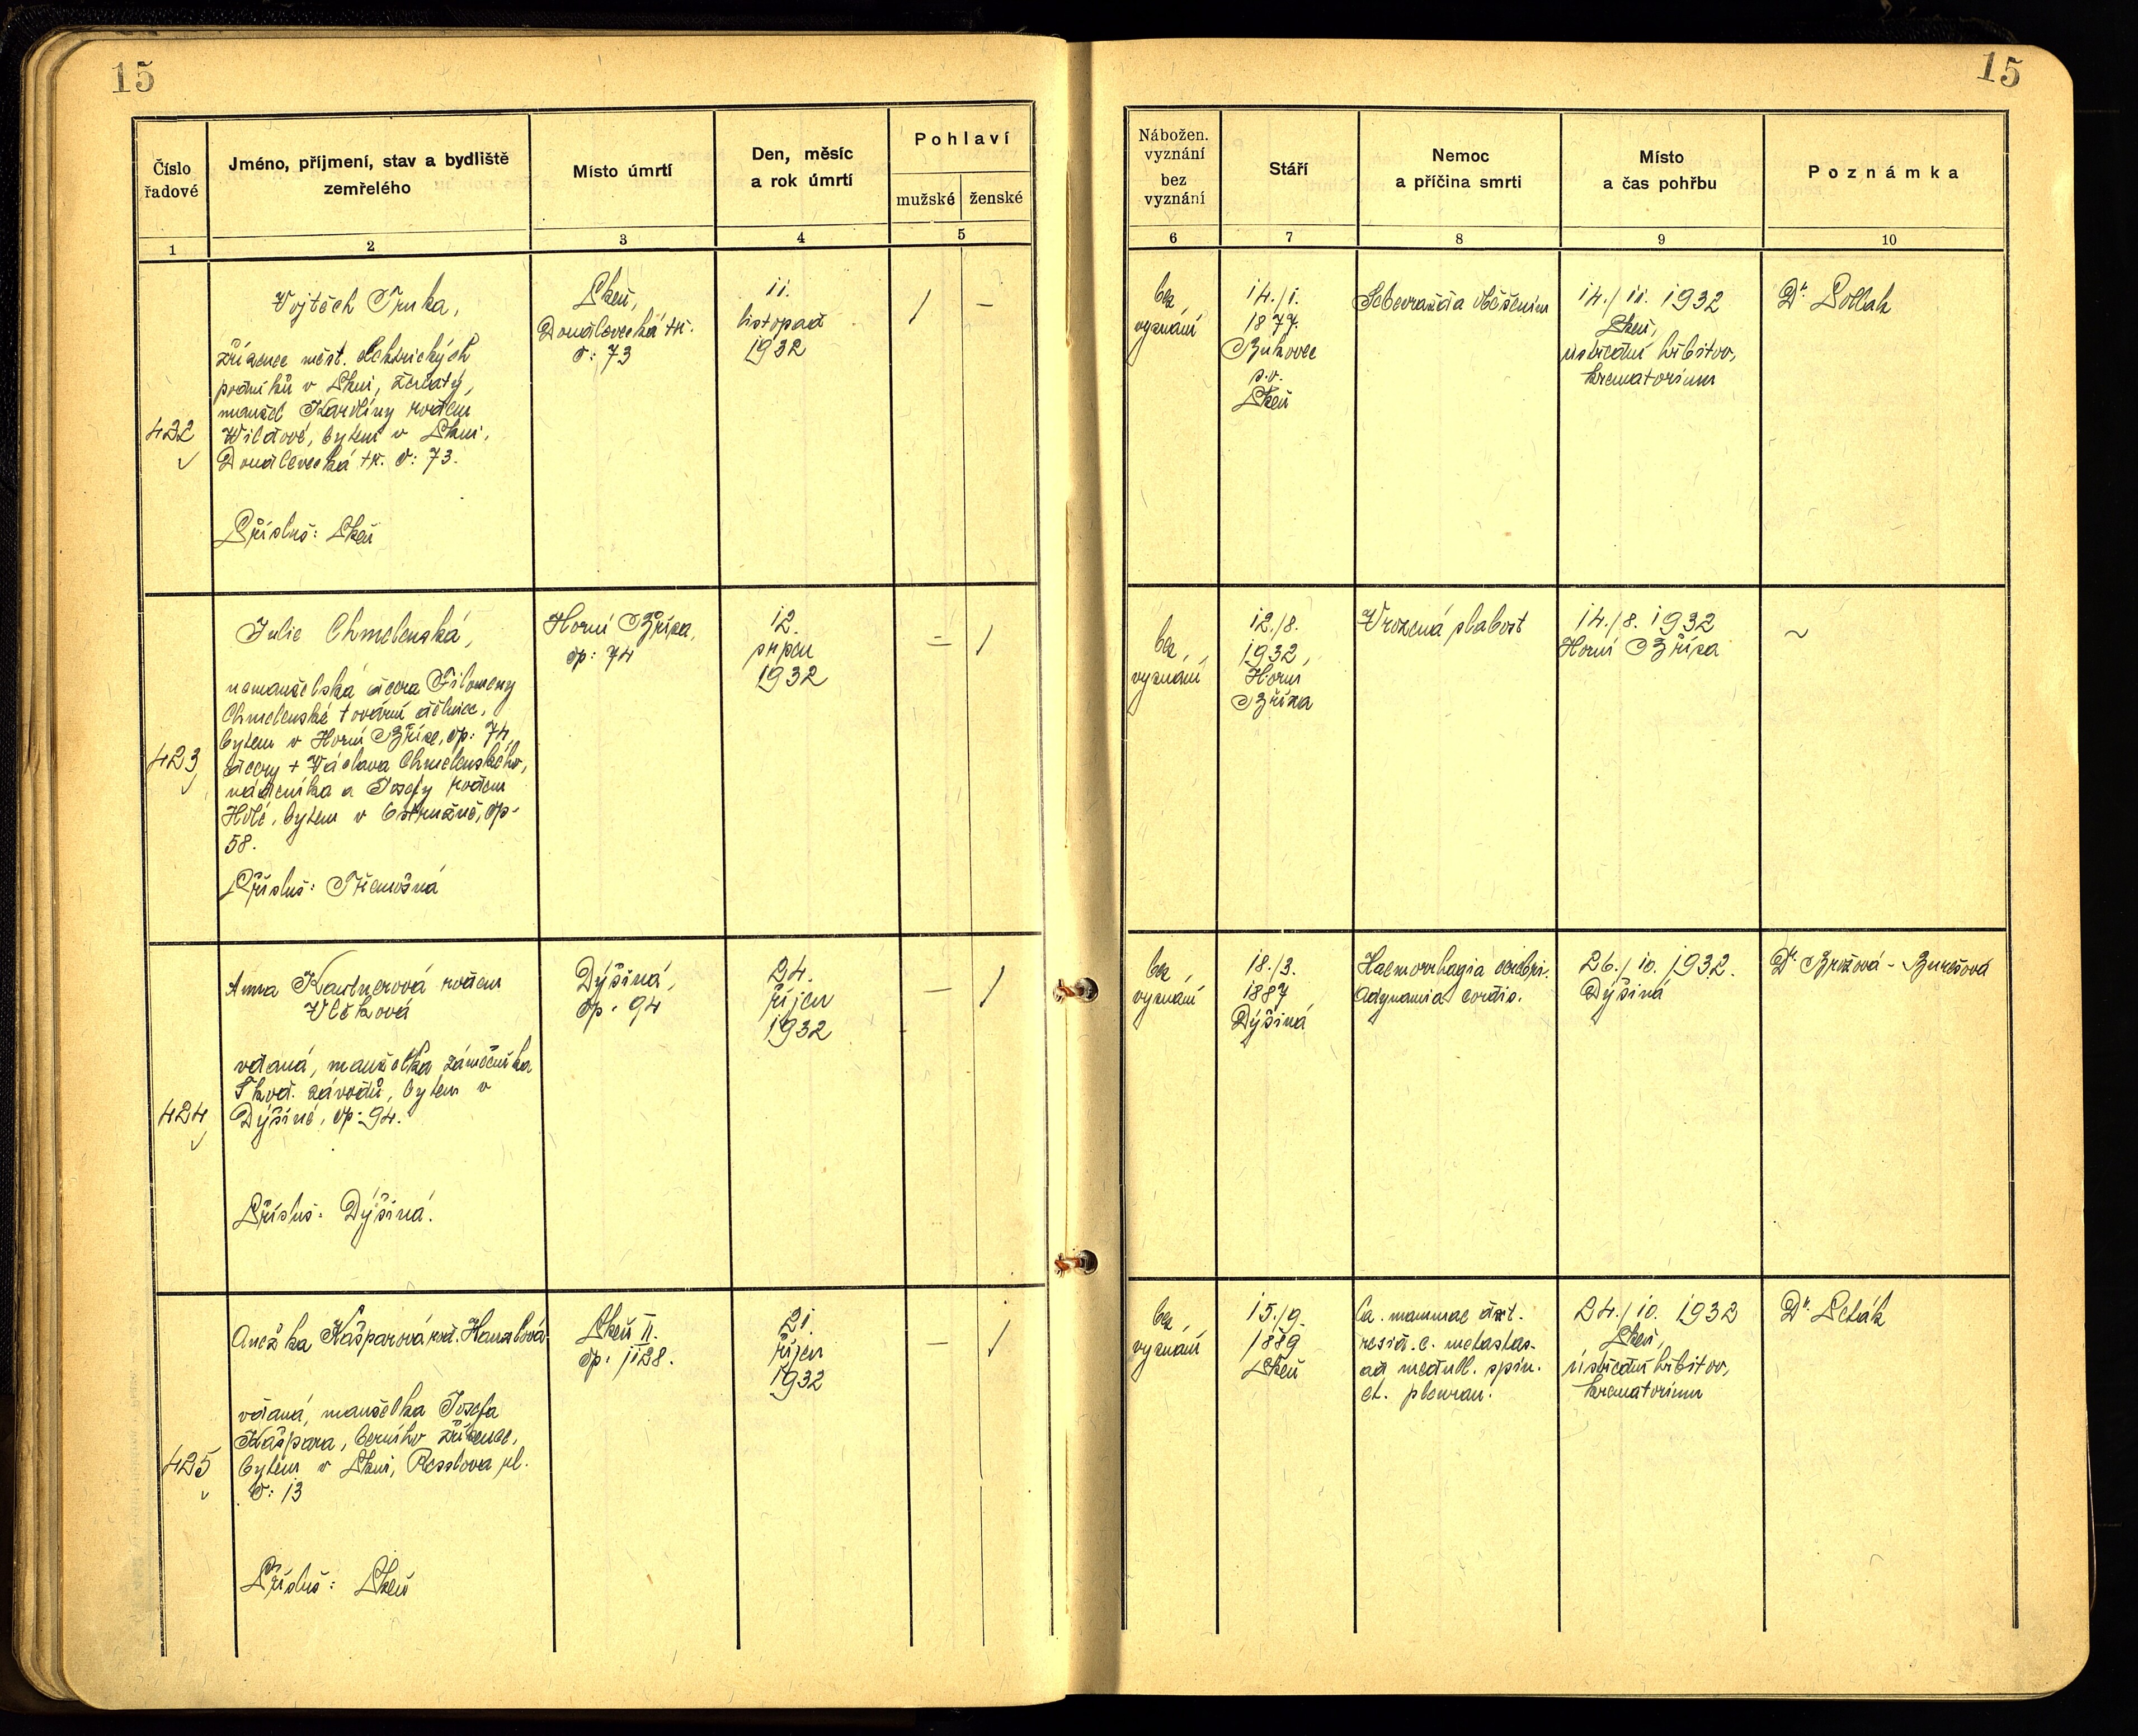 15
15
Číslo
řadové
Jméno, příjmení, stav a bydliště
zemřelého
Místo úmrtí
Den, měsíc
a rok úmrtí
Pohlaví
mužské
ženské
1
2
3
4
5
Nábožen.
vyznání
bez
vyznání
Stáří
Nemoc
a příčina smrti
Místo
a čas pohřbu
Poznámka
6
7
8
9
10
432
Vojtěch Trnka,
zřízenec měst. elektrických
podniků v Plzni, ženatý,
manžel Karolíny rodem
Wildové, bytem v Plzni,
Doudlevecká tř. č: 73.
Přísluš: Plzeň
Plzeň,
Doudlevecká tř.
č: 73
11.
listopad
1932
/
–
bez
vyznání
14./1.
1877.
Bukovec
p.o.
Plzeň
Sebevražda oběšením
14./11. 1932
Plzeň,
ústřední hřbitov,
krematorium
Dr.
423
Julie Chmelenská,
nemanželská dcera Filomeny
Chmelenské tovární dělnice,
bytem v Horní Bříze, čp: 74,
dcery + Václava Chmelenského,
nádeníka a Josefy rodem
Holé, bytem v čp.
58.
Přísluš: Třemošná
Horní Bříza,
čp: 74
12.
srpen
1932
–
/
bez
vyznání
12./8.
1932,
Horní
Bříza
Vrozená slabost
14./8. 1932
Horní Bříza
~
424
Anna Kantnerová rodem
Vlčková
vdaná, manželka zámečníka
Škod. závodů, bytem v
Dýšiné, čp. 94.
Přísluš: Dýšiná.
Dýšiná,
čp. 94
24.
říjen
1932
–
/
bez
vyznání
18./3.
1887
Dýšiná
Haemorrhagia cerebri.
Adynamia cordis.
26./10. 1932.
Dýšiná
Dr. Brožová - Burešová
425
Anežka Kášparová rod. Hanalová
vdaná, manželka Josefa
Kášpara, berního zřízence,
bytem v Plzni, Resslova ul.
č: 13
Přísluš: Plzeň
Plzeň II.
čp. 1128.
21.
říjen
1932
–
/
bez
vyznání
15./9.
1889
Plzeň
Ca. mammae dext.
resid. c. metastas.
ad medull. spin.
et. pleuram.
24./10. 1932
Plzeň,
ústřední hřbitov,
krematorium
Dr. Peták